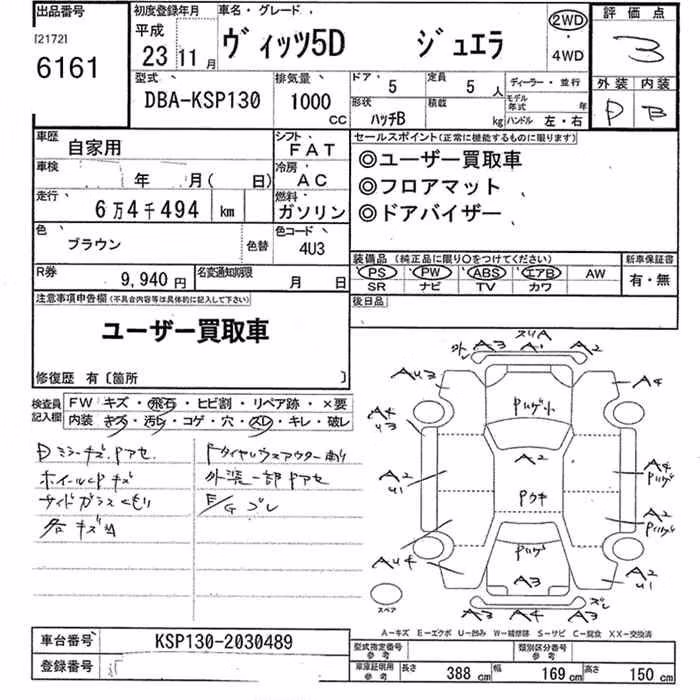 出品番号 初度登録年月 車名・グレード 評価点
[2172] 平成
6161 23 11月 ヴィッツ5D ジュエラ 2WD・4WD 3
型式 排気量 ドア 5 定員 5人 ディーラー・並行 外装 内装
DBA-KSP130 1000cc 形状 ハッチB 積載 kg モデル年式 年 D B
ハンドル 左・右
車歴 自家用 シフト FAT セールスポイント(正常に機能するものに限ります)
車検 年 月( 日) 冷房 AC ◎ユーザー買取車
走行 6万4千494 km 燃料 ガソリン ◎フロアマット
◎ドアバイザー
色 ブラウン 色替 色コード 4U3
装備品(純正品に限り○をつけてください) 新車保証書
R券 9,940円 名変通知期限 月 日 PS PW ABS エアB AW 有・無
SR ナビ TV カワ
注意事項申告欄(不具合内容等は具体的に記入して下さい) 後日品
ユーザー買取車
修復歴 有〔箇所 〕
検査員記入欄 FW キズ・飛石・ヒビ割・リペア跡・×要
内装 キズ・汚レ・コゲ・穴・スレ・キレ・破レ
Dミラーキズ.Pアセ.
ホイールCPキズ 外装一部Pアセ
サイドガラスくもり E/Gブレ
各キズ
外 A3 スリA A1 A2
AU3 A4
Pハゲ小
A4 U3
A2
A2 U1 A4 Pハゲ
Pウキ
A2 Pハゲ
Pハゲ
AU4 A2 U1
A3
スペア A3 A4 A3 ズレ
A-キズ E-エクボ U-凹み W-補修跡 S-サビ C-腐食 XX-交換済
車台番号 KSP130-2030489 型式指定番号 参考 類別区分番号 参考
登録番号 車庫証明用 参考 長さ 388cm 幅 169cm 高さ 150cm